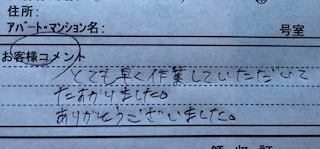 住所:
アパート・マンション名: 号室
お客様コメント
とても早く作業していただいて
たすかりました。
ありがとうございました。
領収証